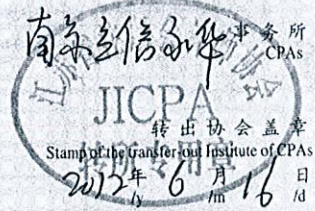 南京立信永华事务所
CPAs
JICPA
转出协会盖章
Stamp of the transfer-out Institute of CPAs
转所专用章
2012年6月16日
/y /m /d